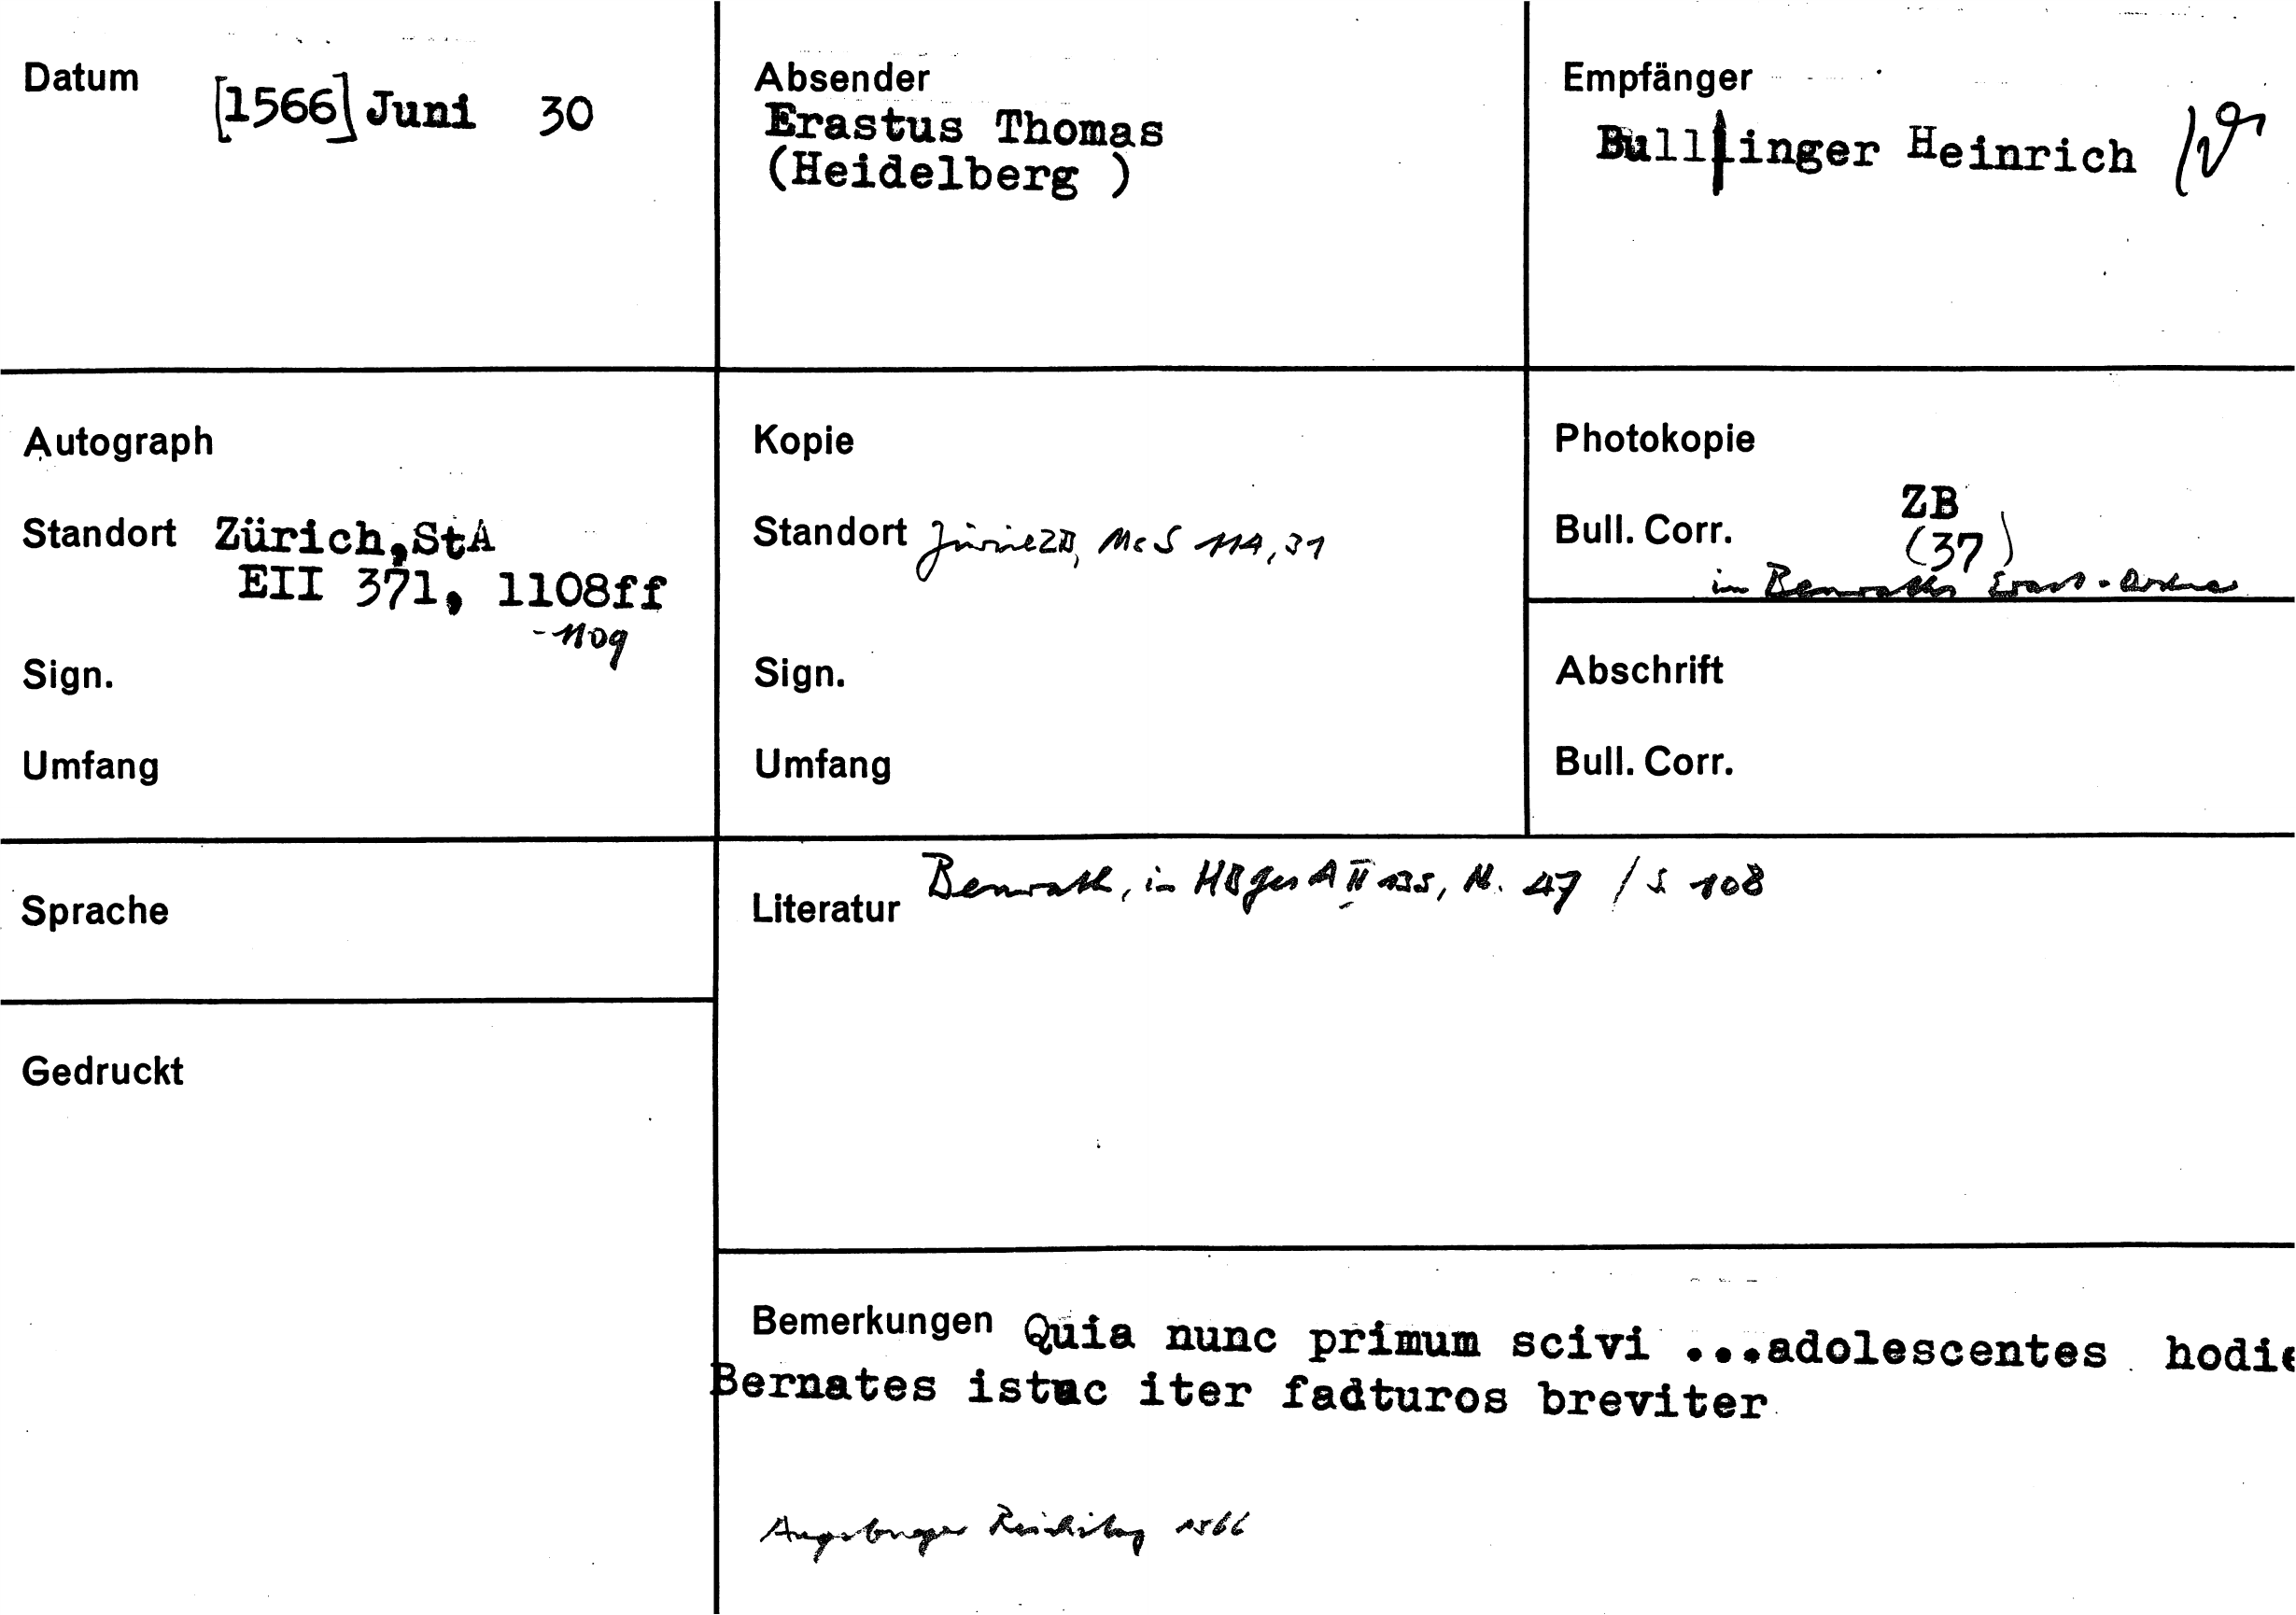 Datum [1566] Juni 30
Absender
Erastus Thomas
(Heidelberg )
Empfänger
Bullinger Heinrich
Autograph
Standort Zürich,StA
EII 371, 1108ff
-1109
Sign.
Umfang
Kopie
Standort Zürich ZB, Ms S 114, 31
Sign.
Umfang
Photokopie
ZB
Bull. Corr. (37)
im Benraths Erast-
Abschrift
Bull. Corr.
Sprache
Literatur Benrath, in HBGesA II 135, N. 47 / S 108
Gedruckt
Bemerkungen Quia nunc primum scivi ...adolescentes hodie
Bernates istuc iter fadturos breviter
Augsburger Reichstag 1566